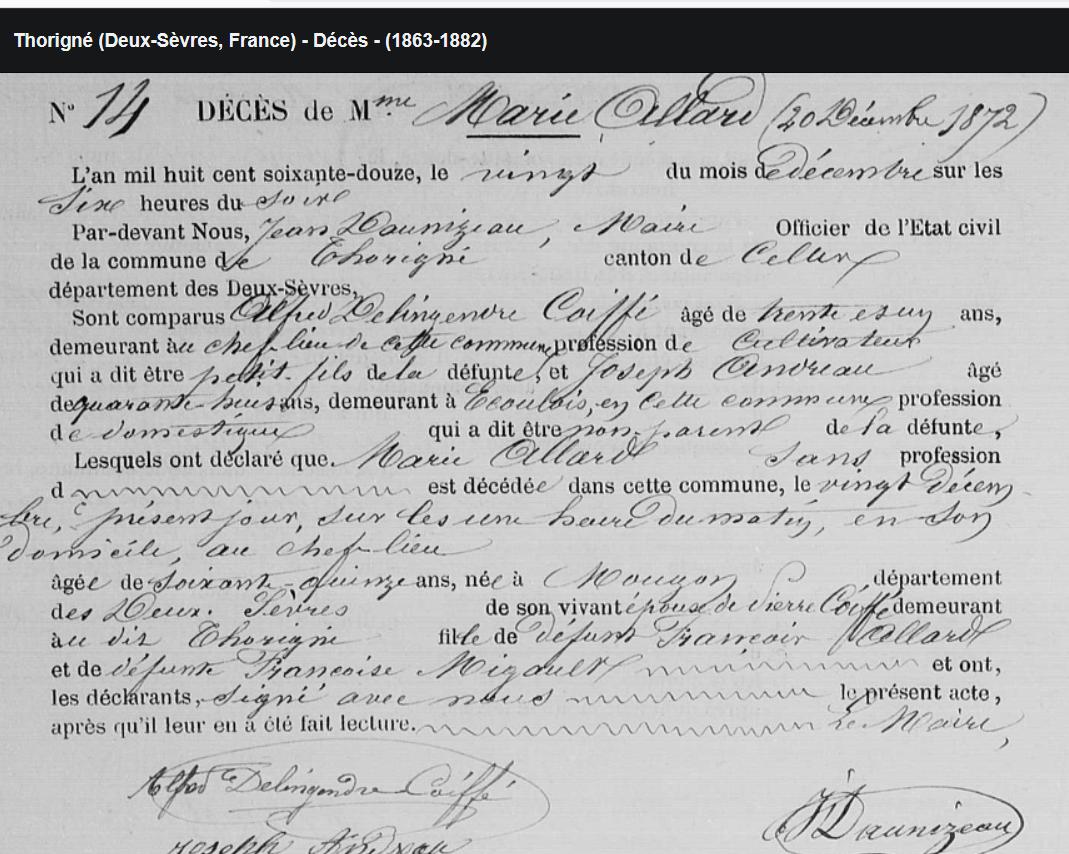 Thorigné (Deux-Sèvres, France) - Décès - (1863-1882)
N° 14 DÉCÈS de Mme Marie Allard (20 Décembre 1872)
L'an mil huit cent soixante-douze, le vingt du mois de décembre sur les
Six heures du soir
Par-devant Nous, Jean Daunizeau, Maire Officier de l'Etat civil
de la commune de Thorigné canton de Celles
département des Deux-Sèvres,
Sont comparus Alfred Delingendre Coiffé âgé de trente et un ans,
demeurant au chef-lieu de cette commune profession de Cultivateur
qui a dit être petit-fils de la défunte, et Joseph Andreau âgé
de quarante-huit ans, demeurant à Ecoutois, en cette commune profession
de domestique qui a dit être non-parent de la défunte,
Lesquels ont déclaré que. Marie Allard sans profession
d est décédée dans cette commune, le vingt Décem-
bre, présent jour, sur les une heure du matin, en son
domicile, au chef-lieu
âgée de soixante-quinze ans, née à Mougon département
des Deux-Sèvres de son vivant épouse de Pierre Coiffé demeurant
au dit Thorigné fille de défunt François Allard
et de défunte Françoise Migault et ont,
les déclarants, signé avec nous le présent acte,
après qu'il leur en a été fait lecture. Le Maire,
Alfred Delingendre Coiffé
Joseph Andreau
J Daunizeau